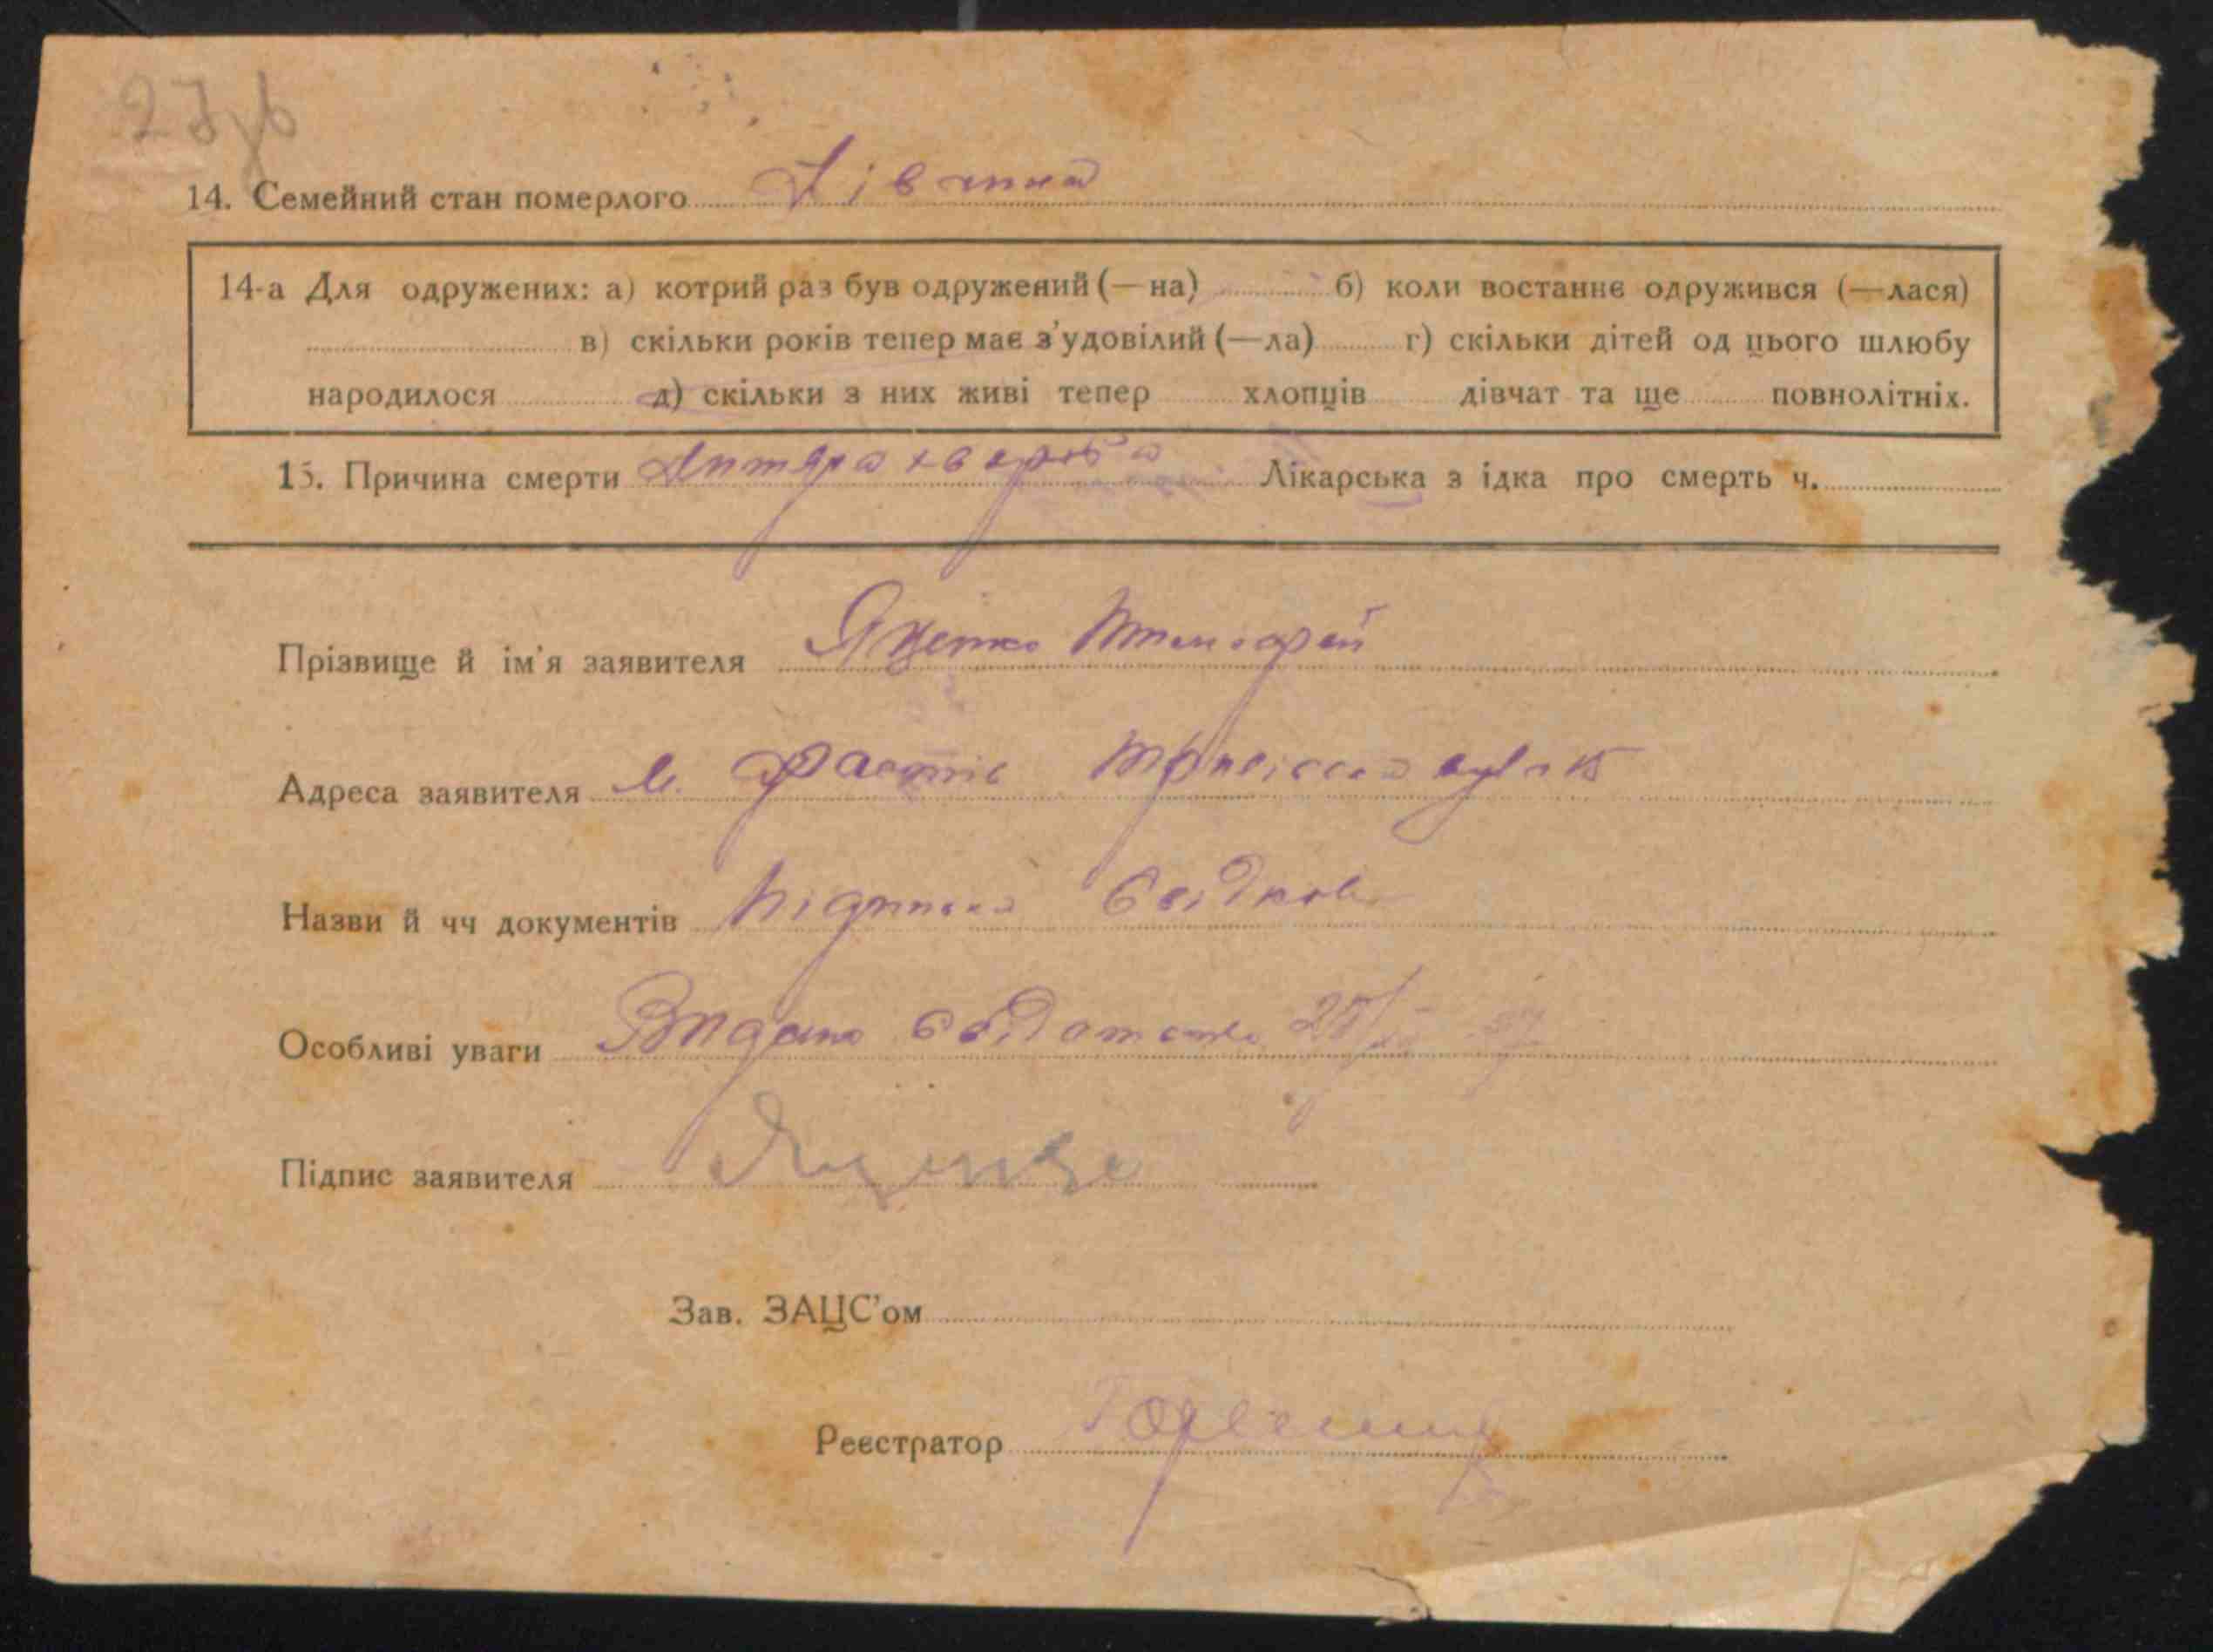 14. Семейний стан померлого Дівчина
14-а Для одружених: а) котрий раз був одружений (—на) б) коли востаннє одружився (—лася)
в) скільки років тепер має з'удовілий (—ла) г) скільки дітей од цього шлюбу
народилося д) скільки з них живі тепер хлопців дівчат та ще повнолітніх.
15. Причина смерти хвороба Лікарська з ідка про смерть ч.
Прізвище й ім'я заявителя Яценко
Адреса заявителя м. Фастів
Назви й чч документів Підписка Свідков
Особливі уваги Видано
Підпис заявителя Яценко
Зав. ЗАЦС'ом
Реєстратор